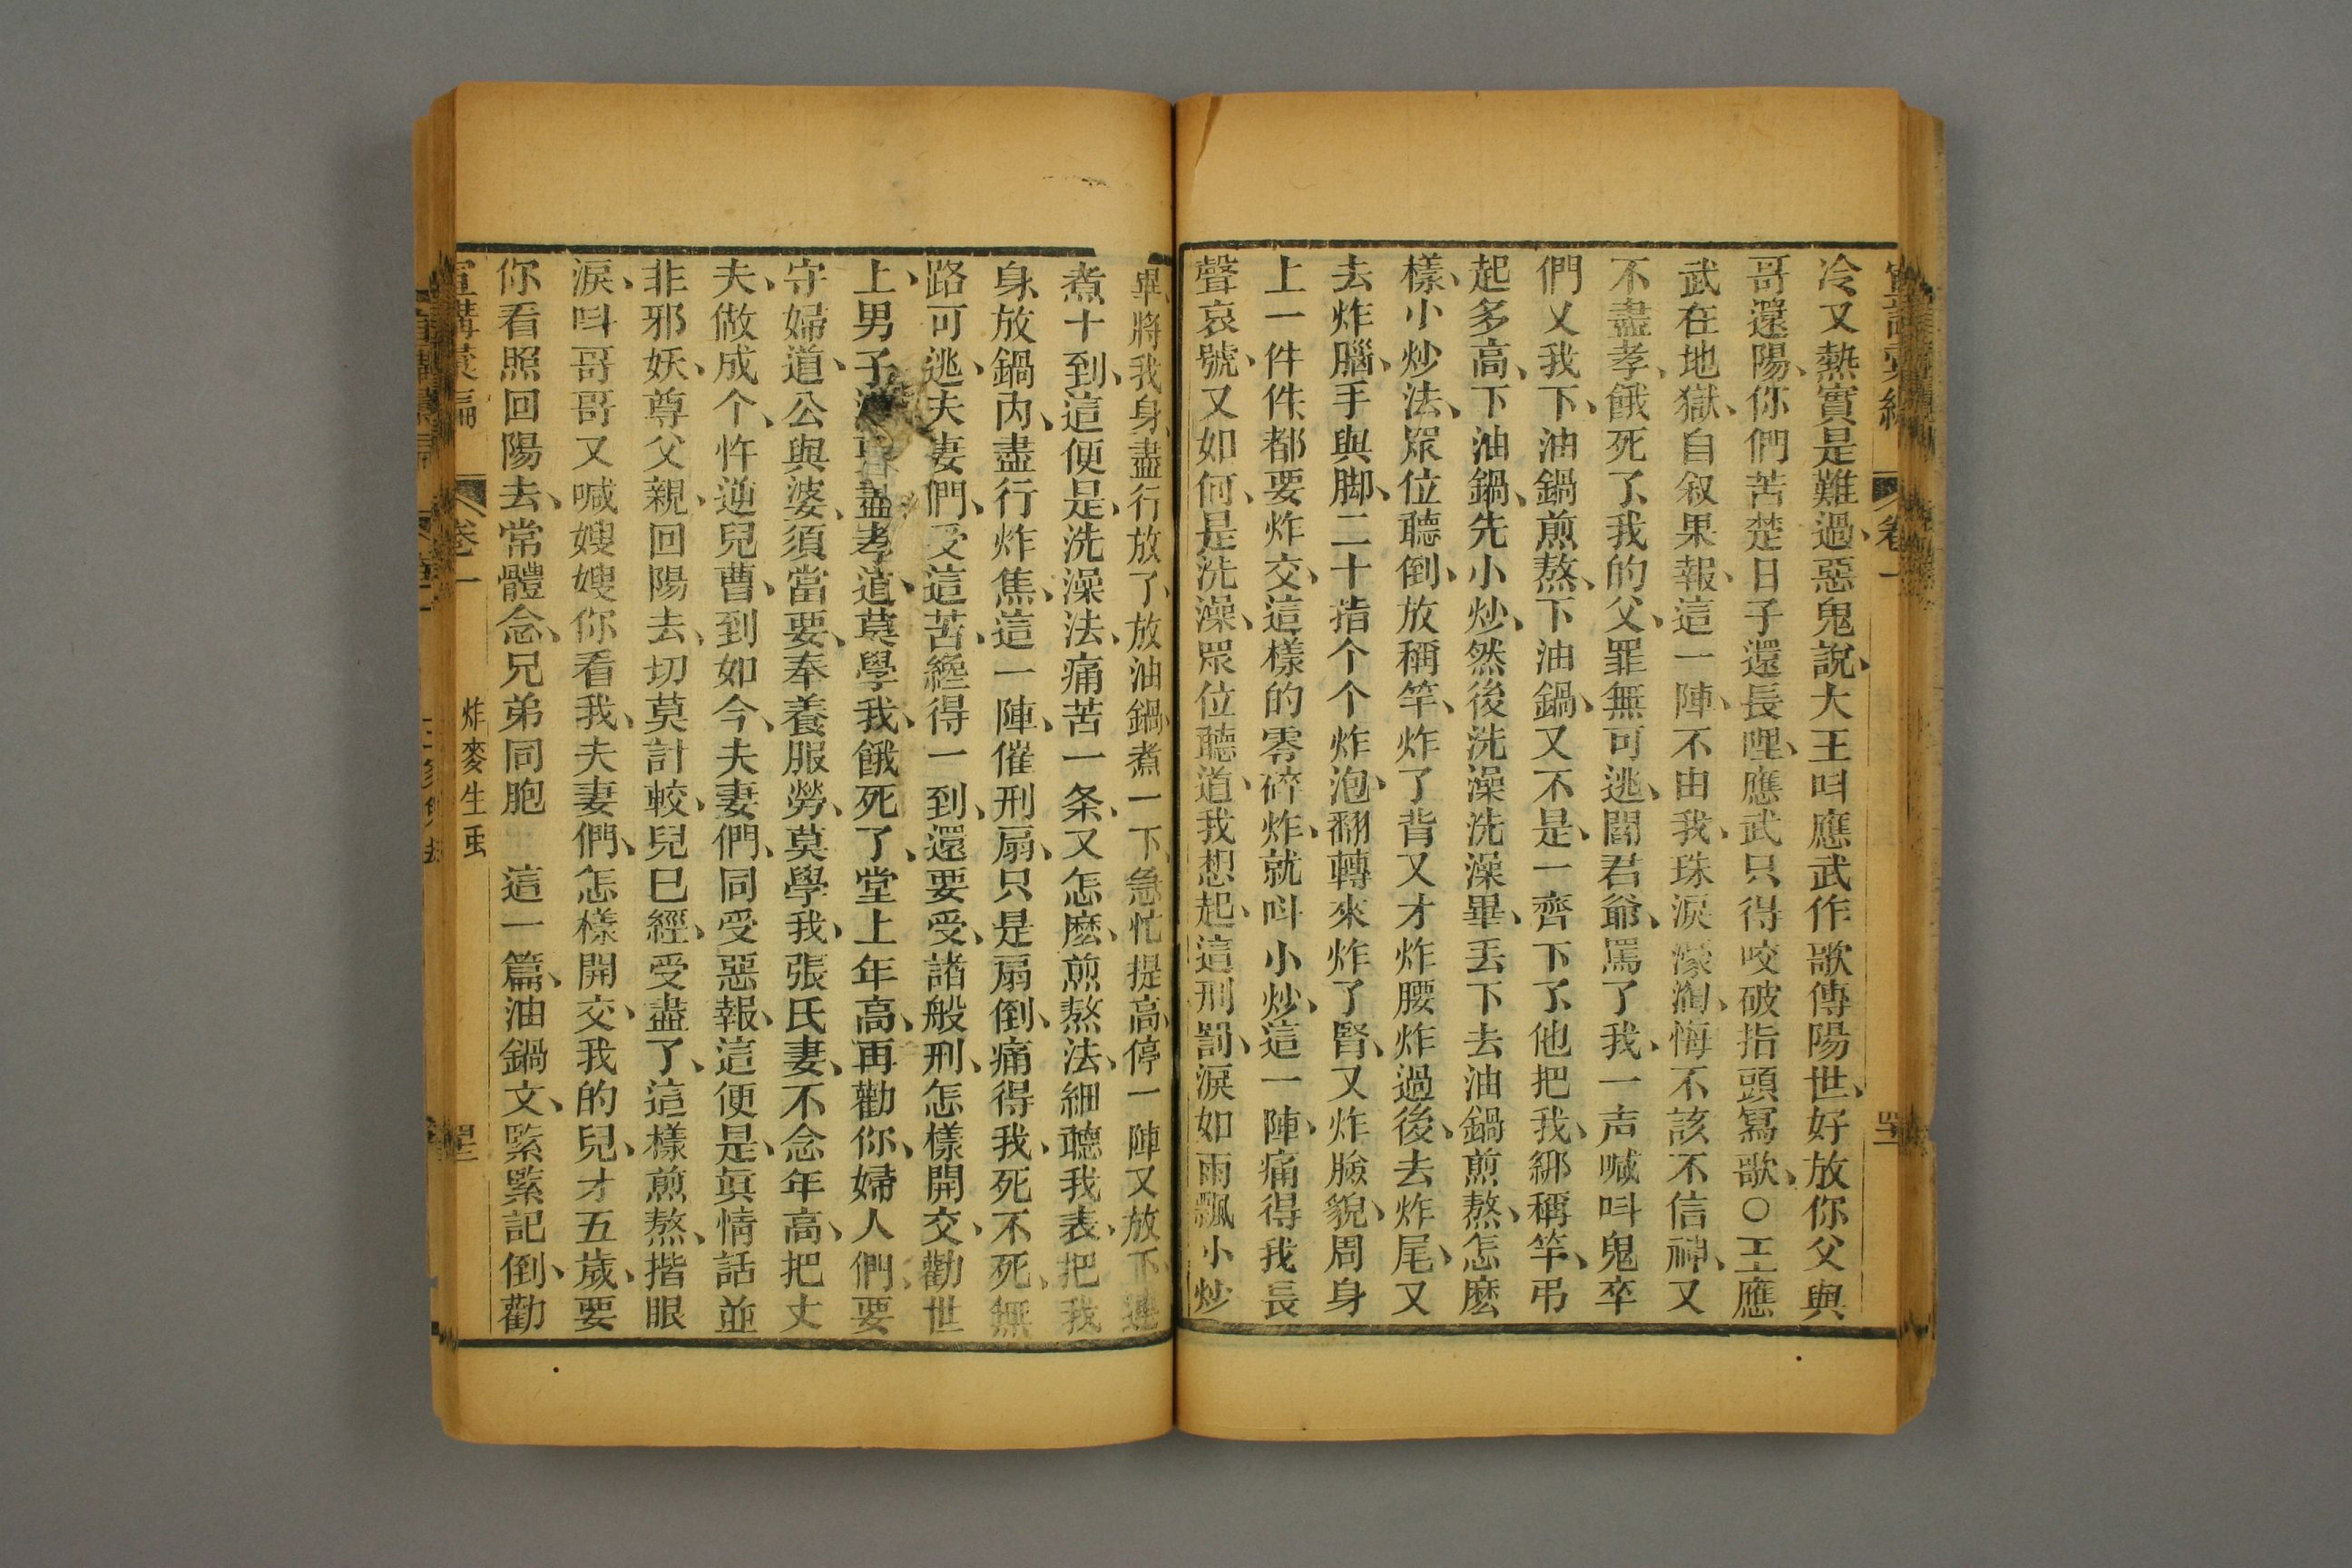 卷一
冷又熱實是難過、惡鬼說、大王呌應武作歌傳陽世、好放你父與
哥還陽、你們苦楚日子還長哩、應武只得咬破指頭寫歌、○王應
武在地獄、自叙果報、這一陣、不由我、珠淚滾淘、悔不該不信神、又
不盡孝、餓死了、我的父、罪無可逃、閻君爺、罵了我、一声喊呌鬼卒
們乂我下、油鍋煎熬、下油鍋、又不是、一齊下了、他把我、綁稱竿、弔
起多高、下油鍋、先小炒、然後洗澡洗澡畢、丟下去油鍋煎熬、怎麽
樣、小炒法、眾位聽倒、放稱竿、炸了背又才炸腰炸過後、去炸尾、又
去炸腦、手與脚、二十指个个炸泡、翻轉來炸了腎、又炸臉貌、周身
上一件件都要炸交、這樣的零碎炸、就呌小炒、這一陣、痛得我長
聲哀號、又如何、是洗澡、眾位聽道、我想起、這刑罰、淚如雨飄小炒
畢、將我身、盡行放了、放油鍋、煮一下、急忙提高、停一陣又放下、連
煮十到、這便是、洗澡法、痛苦一条、又怎麽、煎熬法、細聽我表、把我
身放鍋內、盡行炸焦、這一陣、催刑扇、只是扇倒、痛得我、死不死、無
路可逃、夫妻們、受這苦、纔得一到、還要受、諸般刑、怎樣開交、勸世
上、男子盡孝道、莫學我、餓死了、堂上年高、再勸你、婦人們、要
守婦道、公與婆、須當要、奉養服勞、莫學我、張氏妻、不念年高、把丈
夫、做成个、忤逆兒曹、到如今、夫妻們、同受惡報、這便是、眞情話並
非邪妖、尊父親、回陽去、切莫計較、兒巳經、受盡了、這樣煎熬、揩眼
淚、呌哥哥又喊嫂嫂你看我、夫妻們、怎樣開交、我的兒、才五歲、要
你看照回陽去、常體念、兄弟同胞 這一篇、油鍋文、緊緊記倒、勸
宣講 卷一 炸麥生虫